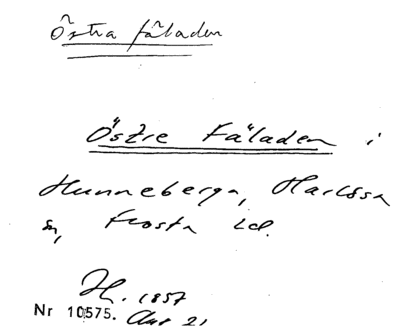 Östra fäladen
Östre Fäladen i
Hunneberga, Harlösa
sn, Frosta hd.
H. 1857
Nr 10575. Akt 21